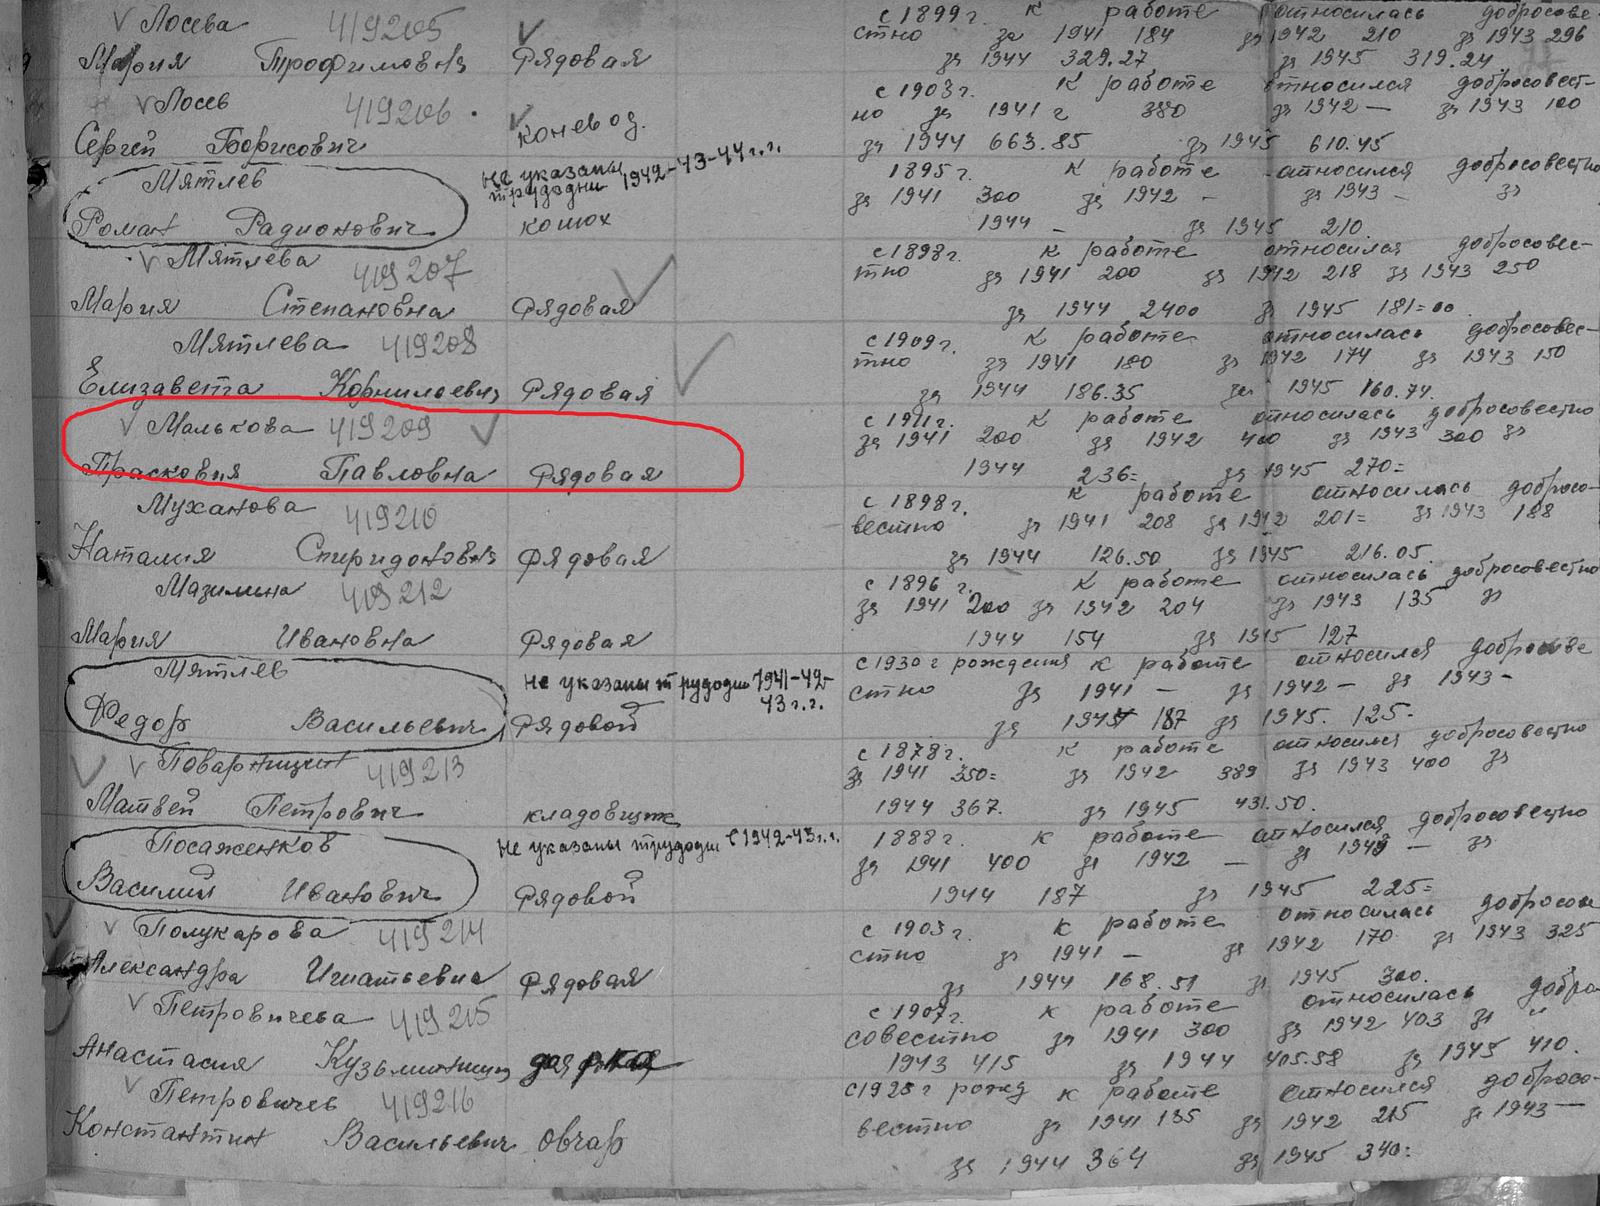 Лосева 419205 с 1899 г. к работе относилась добросове-
стно за 1941 184 за 1942 210 за 1943 296
Мария Трофимовна Рядовая за 1944 329.27 за 1945 319.24
Лосев 419206 с 1903 г. к работе относился добросовест-
но за 1941 г 380 за 1942 — за 1943 100
Сергей Борисович коневод. за 1944 663.85 за 1945 610.45
Мятлев не указаны трудодни 1942-43-44 г.г. 1895 г. к работе относился добросовестно
за 1941 300 за 1942 — за 1943 — за
Роман Радионович конюх 1944 — за 1945 210
Мятлева 419207 с 1898 г. к работе относился добросовес-
тно за 1941 200 за 1942 218 за 1943 250
Мария Степановна Рядовая за 1944 2400 за 1945 181=00
Мятлева 419208 с 1909 г. к работе относилась добросовес-
тно за 1941 180 за 1942 174 за 1943 150
Елизавета Корнилоевна Рядовая за 1944 186.35 за 1945 160.74.
Малькова 419209 с 1921 г. к работе относилась добросовестно
за 1941 200 за 1942 400 за 1943 300 за
Прасковия Павловна Рядовая 1944 236= за 1945 270=
Муханова 419210 с 1898 г. к работе относилась добросо-
вестно за 1941 208 за 1942 201= за 1943 188
Наталия Спиридоновна Рядовая за 1944 126.50 за 1945 216.05
Мазилина 419212 с 1896 г. к работе относилась добросовестно
за 1941 200 за 1942 204 за 1943 135 за
Мария Ивановна Рядовая 1944 154 за 1945 127
Мятлев не указаны трудодни 1941-42-43 г.г. с 1930 г рождения к работе относился добросове
стно за 1941 — за 1942 — за 1943 —
Федор Васильевич Рядовой за 1944 187 за 1945. 125-
Поварницин 419213 с 1878 г. к работе относился добросовестно
за 1941 350= за 1942 389 за 1943 400 за
Матвей Петрович кладовщик 1944 367. за 1945 431.50.
Посаженков не указаны трудодни с 1942-43 г.г. 1888 г. к работе относился добросовестно
за 1941 400 за 1942 — за 1943 — за
Василий Иванович Рядовой 1944 187 за 1945 225=
Полукарова 419214 с 1903 г. к работе относилась добросове
стно за 1941 — за 1942 170 за 1943 325
Александра Игнатьевна Рядовая за 1944 168.51 за 1945 300.
Петровичева 419215 с 1907 г. к работе относилась добро
совестно за 1941 300 за 1942 403 за "
Анастасия Кузьминична доярка 1943 415 за 1944 405.58 за 1945 410.
Петровичев 419216 с 1925 г рожд к работе относился добросо-
вестно за 1941 135 за 1942 215 за 1943 —
Константин Васильевич овчар за 1944 364 за 1945 340=